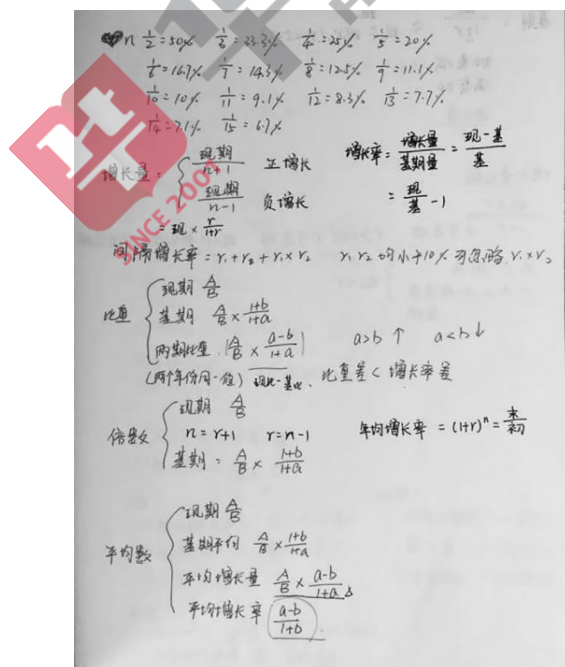 n 1/2=50% 1/3=33.3% 1/4=25% 1/5=20%
1/6=16.7% 1/7=14.3% 1/8=12.5% 1/9=11.1%
1/10=10% 1/11=9.1% 1/12=8.3% 1/13=7.7%
1/14=7.1% 1/15=6.7%
增长量= { 现期/n+1 正增长
现期/n-1 负增长
=现×r/1+r
增长率=增长量/基期量=现-基/基
=现/基-1
间隔增长率=r₁+r₂+r₁×r₂ r₁ r₂均小于10%可忽略r₁×r₂
比重 { 现期 A/B
基期 A/B×1+b/1+a
两期比重 |A/B×a-b/1+a| a>b ↑ a<b↓
(两个年份同一般) 现比-基比、比重差<增长率差
倍数 { 现期 A/B
n=r+1 r=n-1
基期: A/B×1+b/1+a
年均增长率=(1+r)ⁿ=末/初
平均数 { 现期 A/B
基期平均 A/B×1+b/1+a
平均增长量 A/B×a-b/1+a
平均增长率 a-b/1+b
SINCE 2001